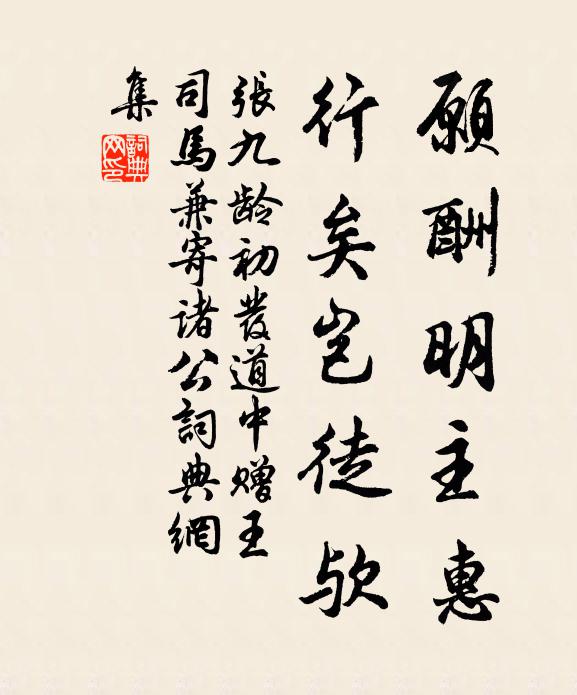 願酬明主惠
行矣豈徒欤
張九龄初發道中赠王
司馬兼寄諸公詞典網
集
詞典網印